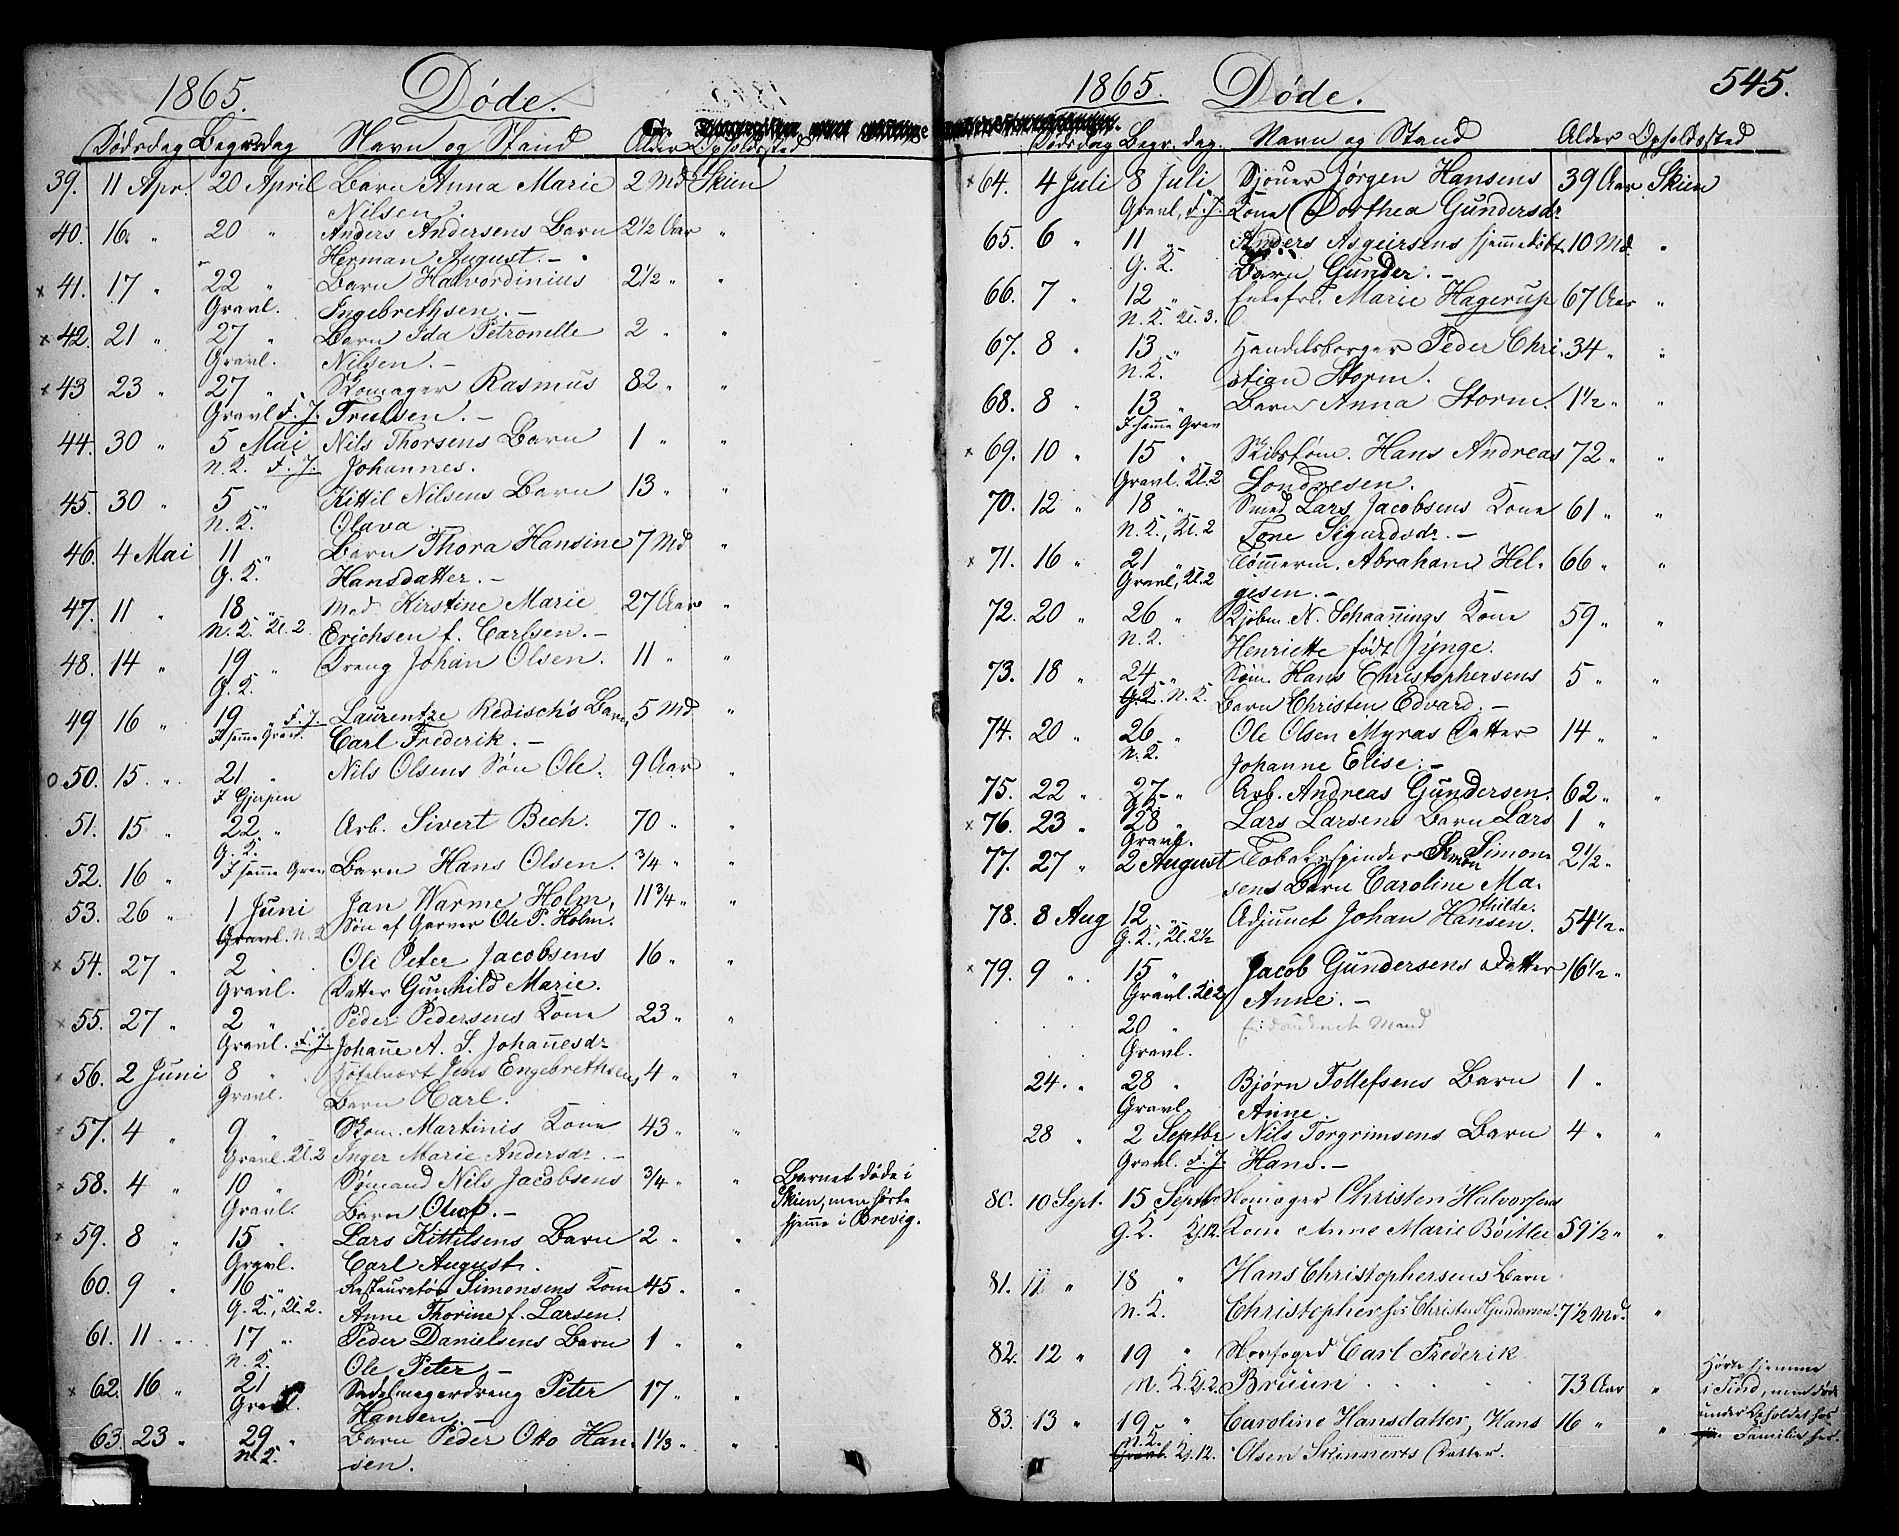 1865. Døde.
Dødsdag Begr.dag Navn og Stand Alder Opholdssted
39. 11 Apr. 20 April Barn Anna Marie 2 Md Skien
Nilsen.
40. 16 " 20 " Anders Andersens Barn 2 1/2 Aar "
Herman August. -
x 41. 17 " 22 " Barn Halvordinius 2 1/2 " "
Gravl. Ingebrethsen. -
x 42. 21 " 27 " Barn Ida Petronelle 2 " "
Gravl. Nilsen. -
x 43 23 " 27 " Skomager Rasmus 82 " "
Gravl F. J. Truelsen. -
44. 30 " 5 Mai Nils Thorsens Barn 1 " "
N. K. F. J. Johannes.
45. 30 " 5 " Kittil Nilsens Barn 13 " "
N. K. Olava.
46. 4 Mai 11 " Barn Thora Hansine 7 Md "
G. K. Hansdatter. -
47. 11 " 18 " Mad Kirstine Marie 27 Aar "
N. K. Kl. 2. Erichsen f. Carlsen. -
48. 14 " 19 " Dreng Johan Olsen. 11 " "
G. K.
49 16 " 19 " F. J. Laurentze Redisch's Barn 5 Md "
I samme Grav. Carl Frederik. -
o 50. 15 " 21 " Nils Olsens Søn Ole. 9 Aar "
I Gjerpen
51. 15 " 22 " Arb. Sivert Bech. 70 " "
G. K.
52. 16 " I samme Grav Barn Hans Olsen. 3/4 " "
53. 26 " 1 Juni Jan Warme Holm, 11 3/4 " "
Gravl. N. K Søn af Garver Ole P. Holm.
x 54. 27 " 2 " Ole Peter Jacobsens 16 " "
Gravl. Datter Gunhild Marie.
x 55. 27 " 2 " Peder Pedersens Kone 23 " "
Gravl. F. J. Johanne A. S. Johannesdr
x 56. 2 Juni 8 " Jens Engebrethsens 4 " "
Gravl. Barn Karl.
x 57. 4 " 9 " Skom. Martinis Kone 43 " "
Gravl. Kl. 2 Inger Marie Andersdr. -
x 58. 4 " 10 " Sømand Nils Jacobsens 3/4 " " Barnet døde i
Gravl. Barn Oluf. - Skien, men hørte
hjemme i Brevig.
x 59. 8 " 15 " Lars Kittilsens Barn 2 " "
Gravl. Carl August.
60. 9 " 16 " Restauratør Simonsens Kone 45 " "
G. K., Kl. 2. Anne Thorine f. Larsen.
61. 11 " 17 " Peder Danielsens Barn 1 " "
N. K. Ole Peter -
x 62. 16 " 21 " Sadelmagerdreng Peter 17 " "
Gravl. Hansen. -
63. 23 " 29 " Barn Peder Otto Han- 1 1/3 " "
N. K. sen.
1865. Døde. 545.
Dødsdag Begr. dag. Navn og Stand Alder Opholdssted
x 64. 4 Juli 8 Juli Sjouer Jørgen Hansens 39 Aar Skien
Gravl, F. J. Kone Dorthea Gundersdr
65. 6 " 11 " Anders Asgeirsens hjemmedøbt 10 Md. "
G. K. Barn Gunder. -
66. 7 " 12 " Enkefr. Marie Hagerup 67 Aar "
N. K. Kl. 3.
67. 8 " 13 " Handelsborger Peder Chri- 34 " "
N. K. stian Storm.
68. 8 " 13 " Barn Anna Storm. 1 1/2 " "
I samme Grav
x 69. 10 " 15 " Skibstøm. Hans Andreas 72 " "
Gravl. Kl. 2 Sondresen.
70. 12 " 18 " Smed Lars Jacobsens Kone 61 " "
N. K., Kl. 2 Tone Sigurdsdr. -
x 71. 16 " 21 " Tømmerm. Abraham Hel- 66 " "
Gravl, Kl. 2 gesen. -
72. 20 " 26 " Kjøbm. N. Schaannings Kone 59 " "
N. K. Henriette født Jynge.
73. 18 " 24 " Søm. Hans Christophersens 5 " "
G. K. N. K. Barn Christen Edvard. -
74. 20 " 26 " Ole Olsen Myras Datter 14 " "
N. K. Johanne Elise. -
75. 22 " 27 " Arb. Andreas Gundersen. 62 " "
G. K.
x 76. 23 " 28 " Lars Larsens Barn Lars 1 "
Gravl.
77. 27 " 2 August Tobakspinder Simon Simon- 2 1/2 "
sens Barn Caroline Ma-
thilde.
78. 8 Aug 12 " Adjunct Johan Hansen. 54 1/2 "
G. K., Kl. 2 1/2
x 79. 9 " 15 " Jacob Gundersens Datter 16 1/2 "
Gravl. Kl 2 Anne. -
20 " Mand
Gravl.
24. " 28 " Bjørn Tollefsens Barn 1 "
Gravl. Anne.
28 " 2 Septbr Nils Torgrimsens Barn 4 " "
Gravl. F. J. Hans. -
80. 10 Sept. 15 Septbr Skomager Christen Halvorsens
G. K. Kl. 2. Kone Anne Marie Bøitler 59 1/2 " "
81. 11 " 18 " Hans Christophersens Barn
N. K. Christopher hos Christen Gundersen. 7 1/2 Md. "
82. 12 " 19 " Carl Frederik
N. K. Kl. 2. Bruun 73 Aar " Hørte hjemme
i Tind, men døde
under Opholdet hos
Familie her.
83. 13 " 19 " Caroline Hansdatter, Hans 16 " "
N. K. Gravl. Kl. 2. Olsen Skinnerts Datter.